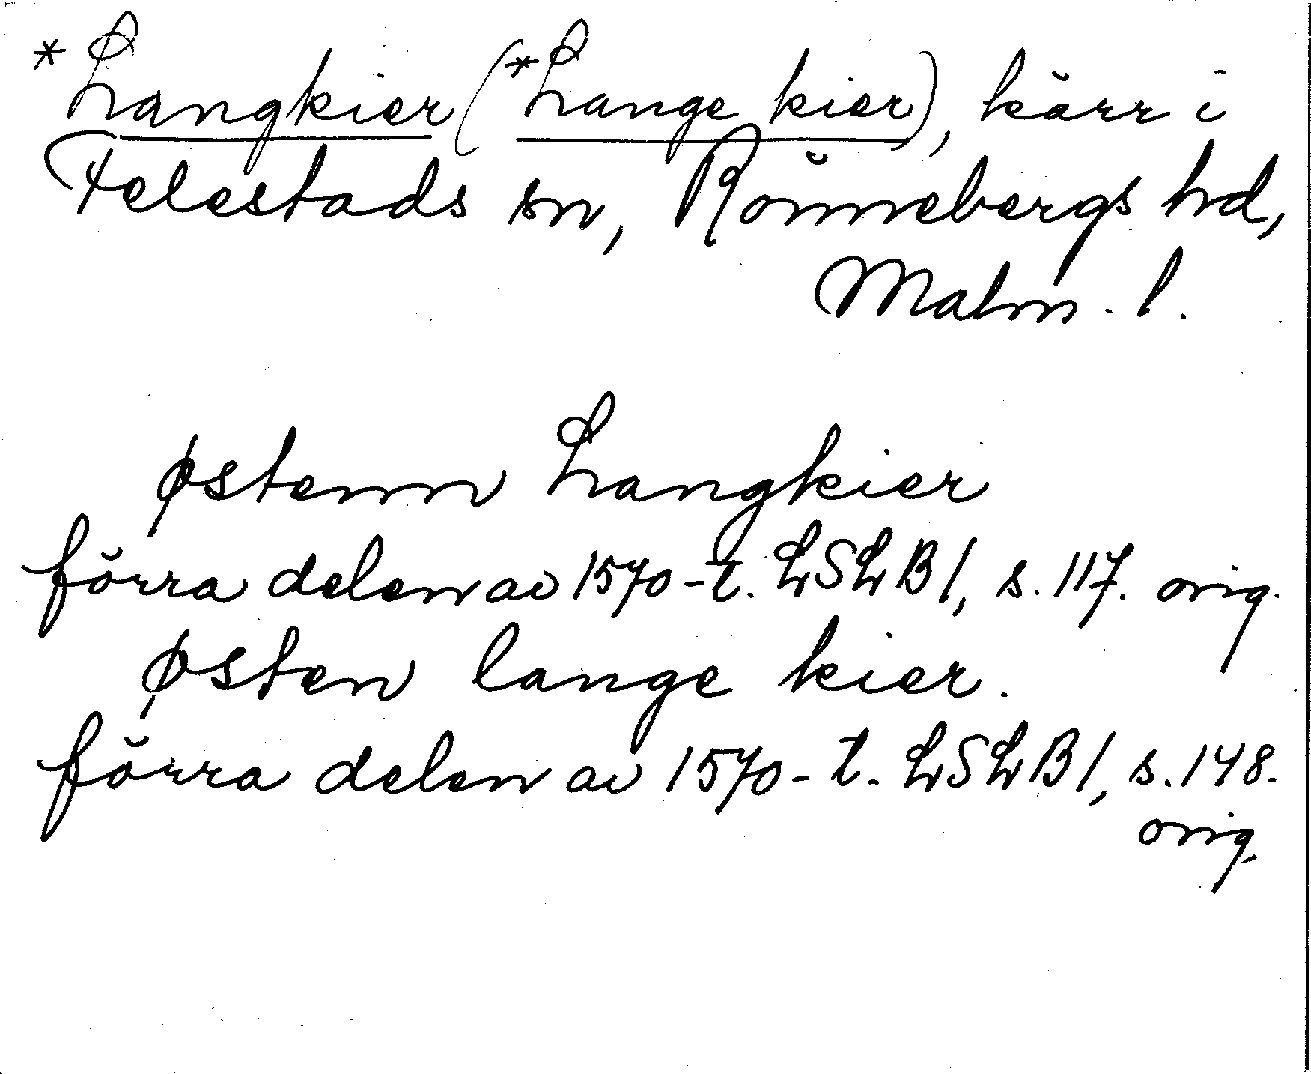 *Langkier (*Lange kier), kärr i
Felestads sn, Rönnebergs hd,
Malm. l.
østenn Langkier
förra delen av 1570-t. LSLB1, s. 117. orig.
østen lange kier.
förra delen av 1570-t. LSLB1, s. 148.
orig.